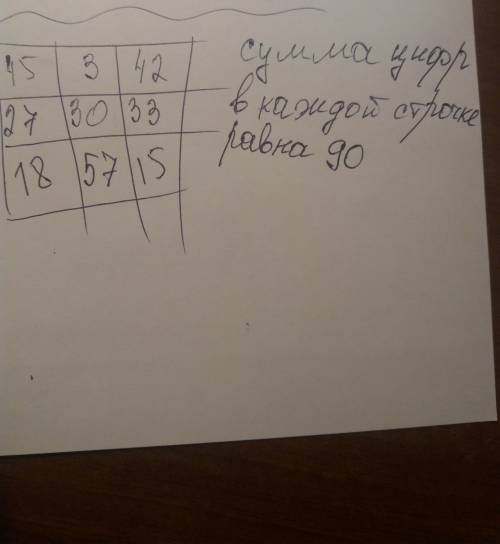 45 3 42
27 30 33
18 57 15
сумма цифр
в каждой строчке
равна 90